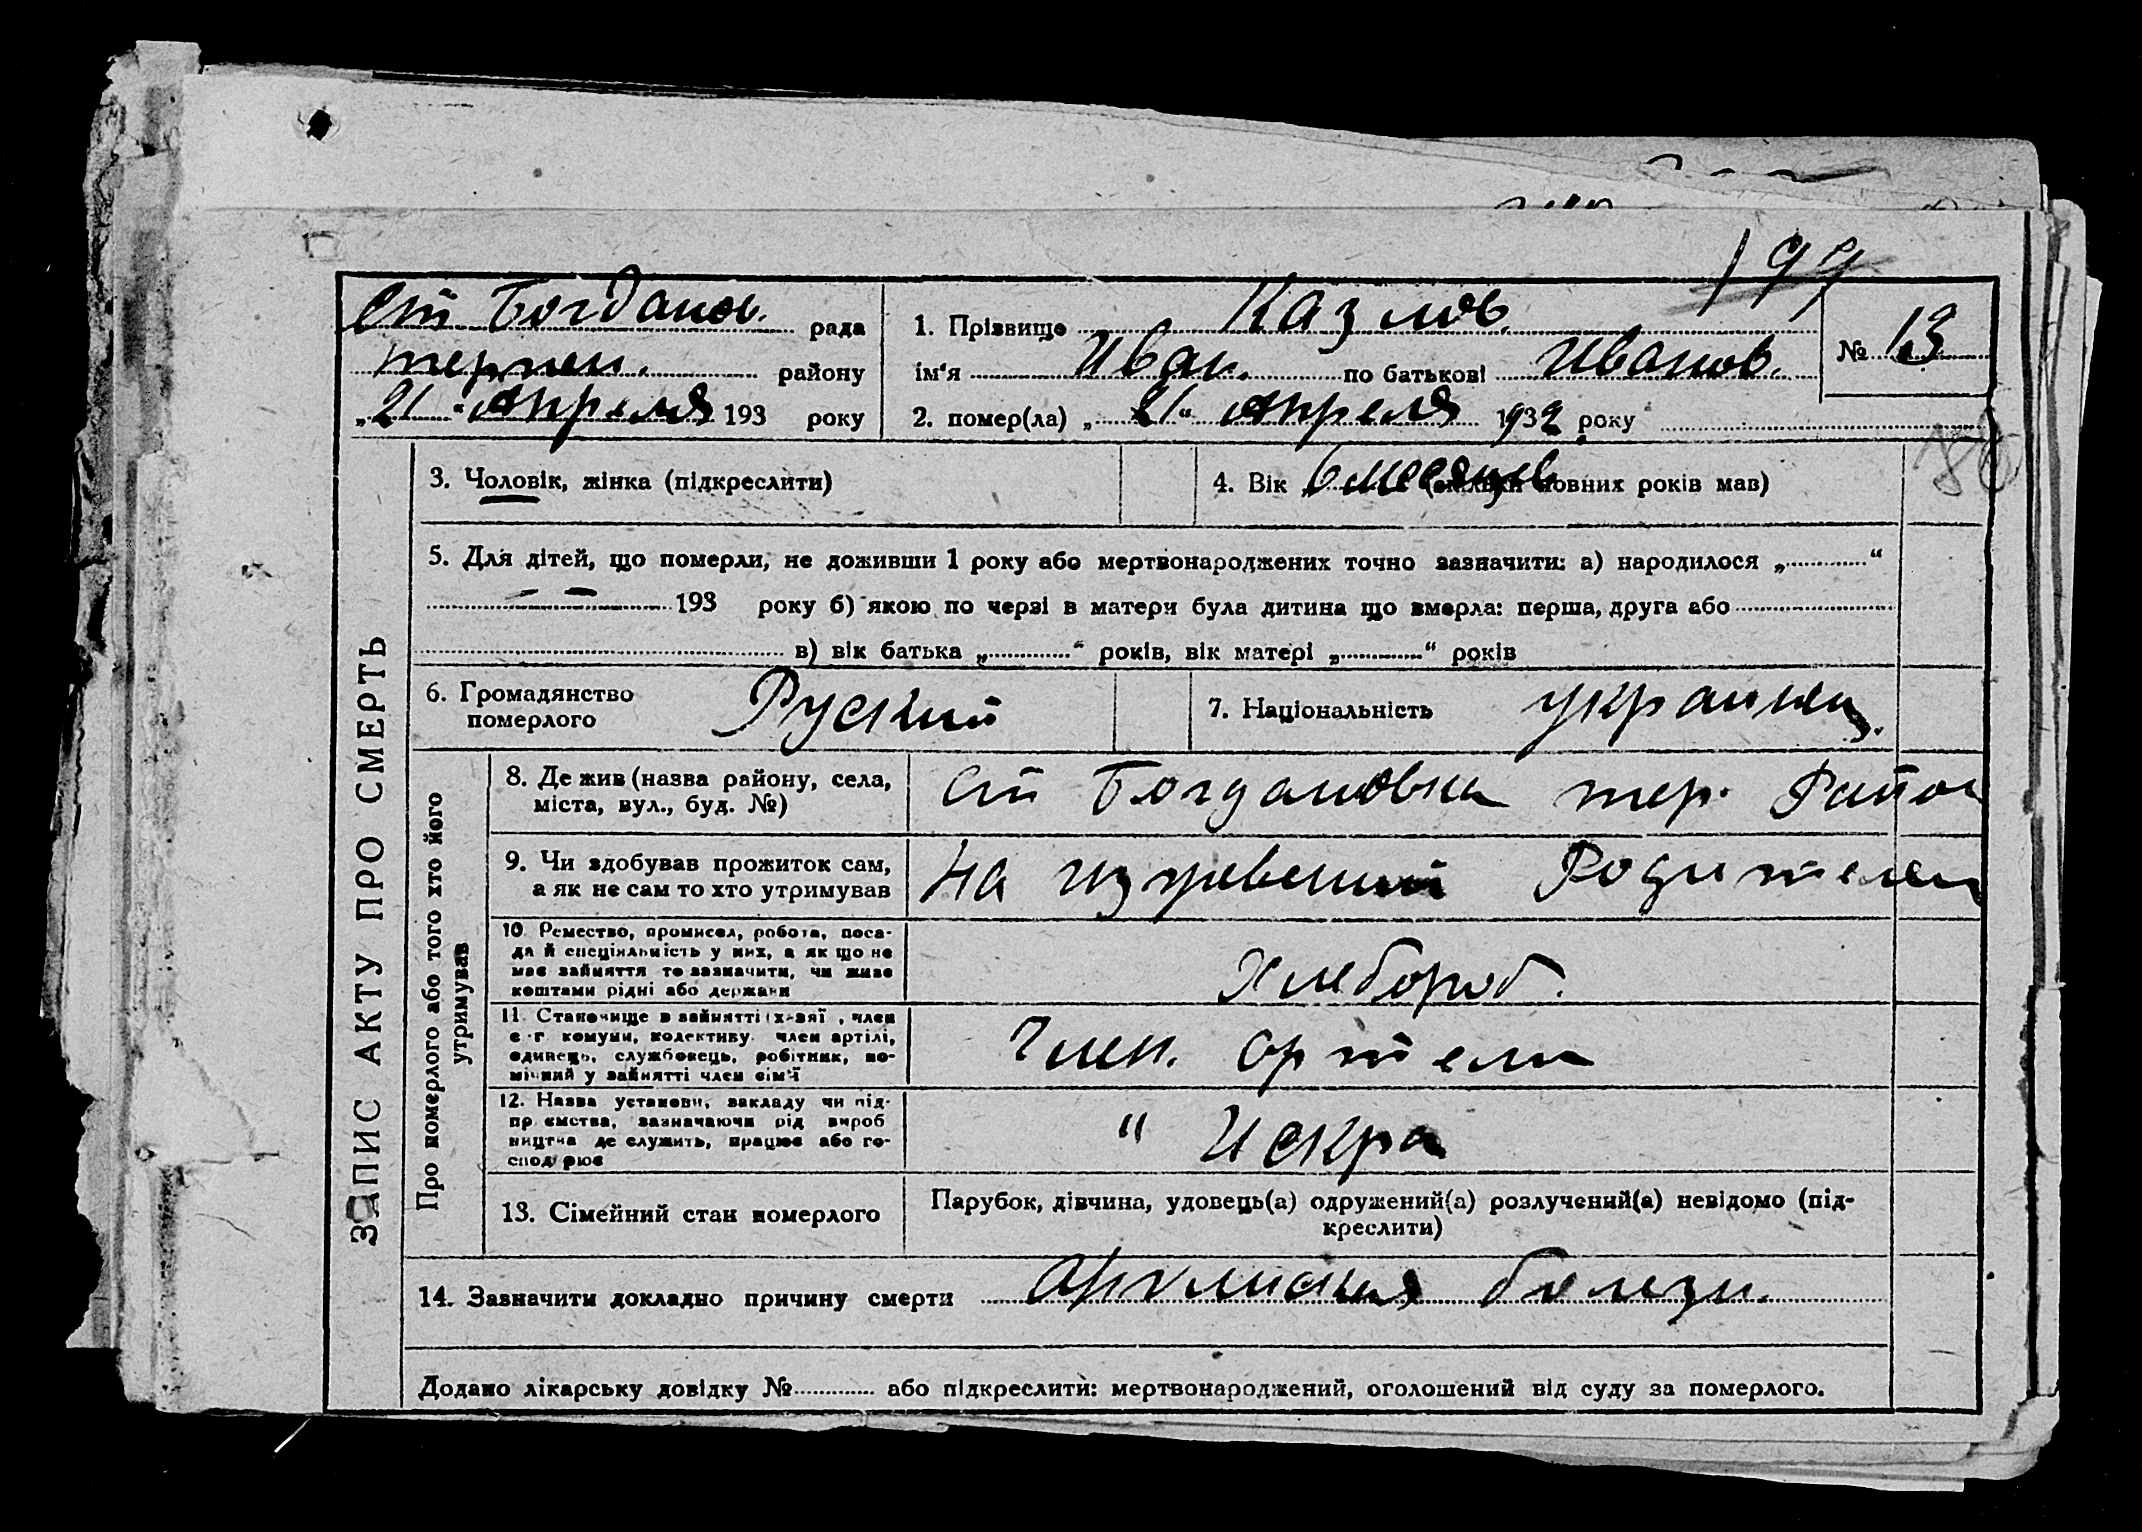 199
Ст Богданов. рада
терпен. району
„21“ Апреля 193 року
1. Прізвище Казлов
ім'я Иван. по батькові Иванов.
2. помер(ла) „21“ Апреля 1932 року
№ 13
3. Чоловік, жінка (підкреслити)
4. Вік 6 месяцев (скільки повних років мав)
5. Для дітей, що померли, не доживши 1 року або мертвонароджених точно зазначити: а) народилося „ “
— — 193 року б) якою по черзі в матери була дитина що вмерла: перша, друга або
в) вік батька „ “ років, вік матері „ “ років
6. Громадянство
померлого
Руский
7. Національність украинец.
ЗАПИС АКТУ ПРО СМЕРТЬ
Про померлого або того хто його
утримував
8. Де жив (назва району, села,
міста, вул., буд. №)
Ст Богдановка тер. Район
9. Чи здобував прожиток сам,
а як не сам то хто утримував
На Родителей
10. Ремество, промисел, робота, поса-
да й спеціяльність у них, а як що не
має зайняття то зазначити, чи живе
коштами рідні або держави
Хлебороб.
11. Становище в зайнятті член
комуни, колективу член артілі,
одинець, службовець, робітник, по-
мічний у зайнятті член сім'ї
Член. Артели
12. Назва установи, закладу чи під-
пр ємства, зазначаючи рід вироб
ництва де служить, працює або го-
спод рює
" Искра
13. Сімейний стан померлого
Парубок, дівчина, удовець(а) одружений(а) розлучений(а) невідомо (під-
креслити)
14. Зазначити докладно причину смерти болезн.
Додано лікарську довідку № або підкреслити: мертвонароджений, оголошений від суду за померлого.